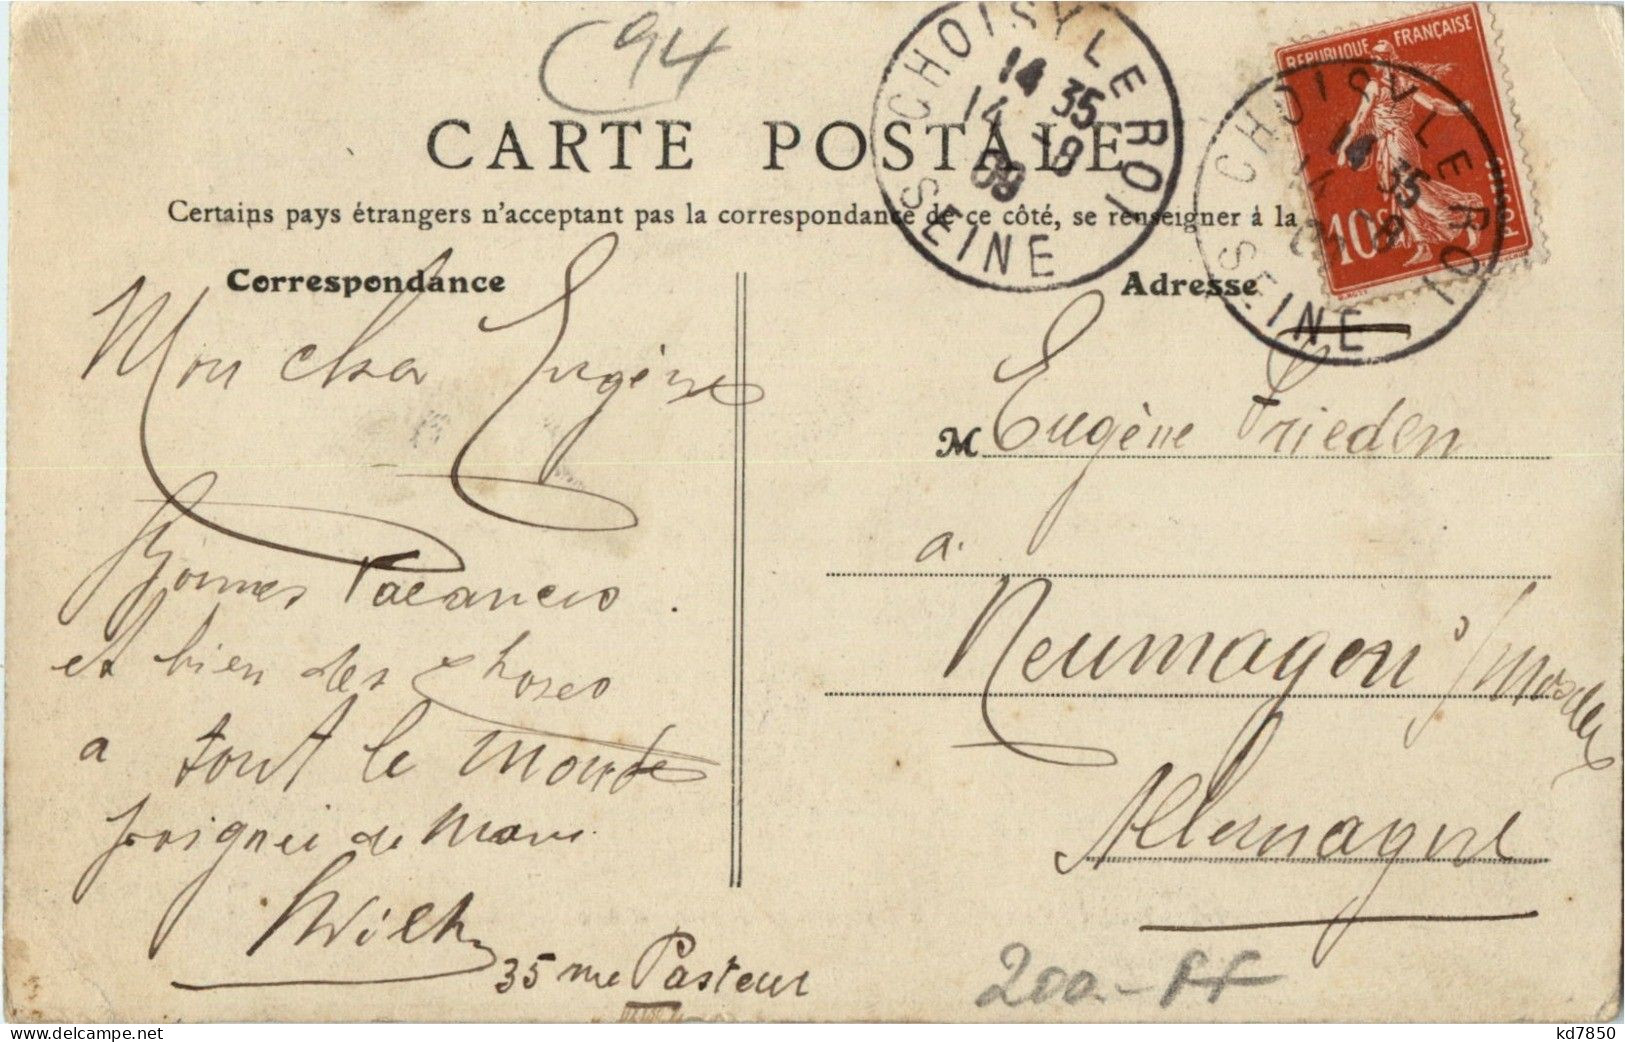 C 94
CARTE POSTALE
Certains pays étrangers n'acceptent pas la correspondance de ce côté, se renseigner à la
CHOISY LE ROI
14 35
14 -8
09
SEINE
REPUBLIQUE FRANÇAISE
10c
POSTES
CHOISY LE ROI
14 35
14 -8
09
SEINE
Correspondance
Mon cher Eugène
Bonnes Vacances.
et bien des choses
a tout le monde
poignée de main
35 rue Pasteur
Adresse
M Eugène Frieden
a.
Neumagen s/Mosder
Allemagne
200.- FF
www.delcampe.net
kd7850